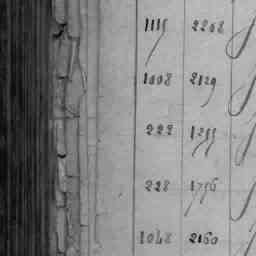 1115 2208
1008 2129
222 1255
228 1756
1048 2160